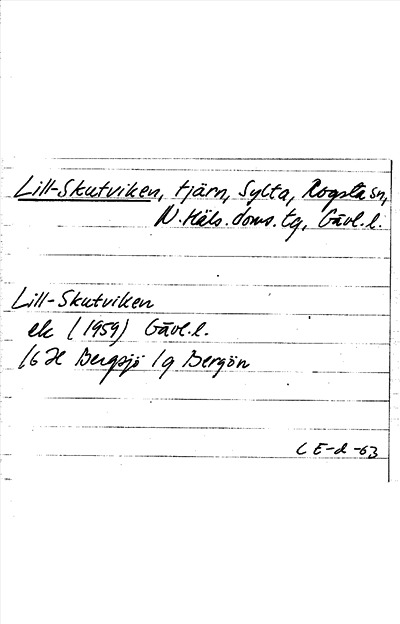 Lill-Skutviken, tjärn, Sylta, Rogsta sn,
N. Häls. doms. tg, Gävl. l.
Lill-Skutviken
ek (1959) Gävl. l.
16 H Bergsjö 1g Bergön
CE-d -63